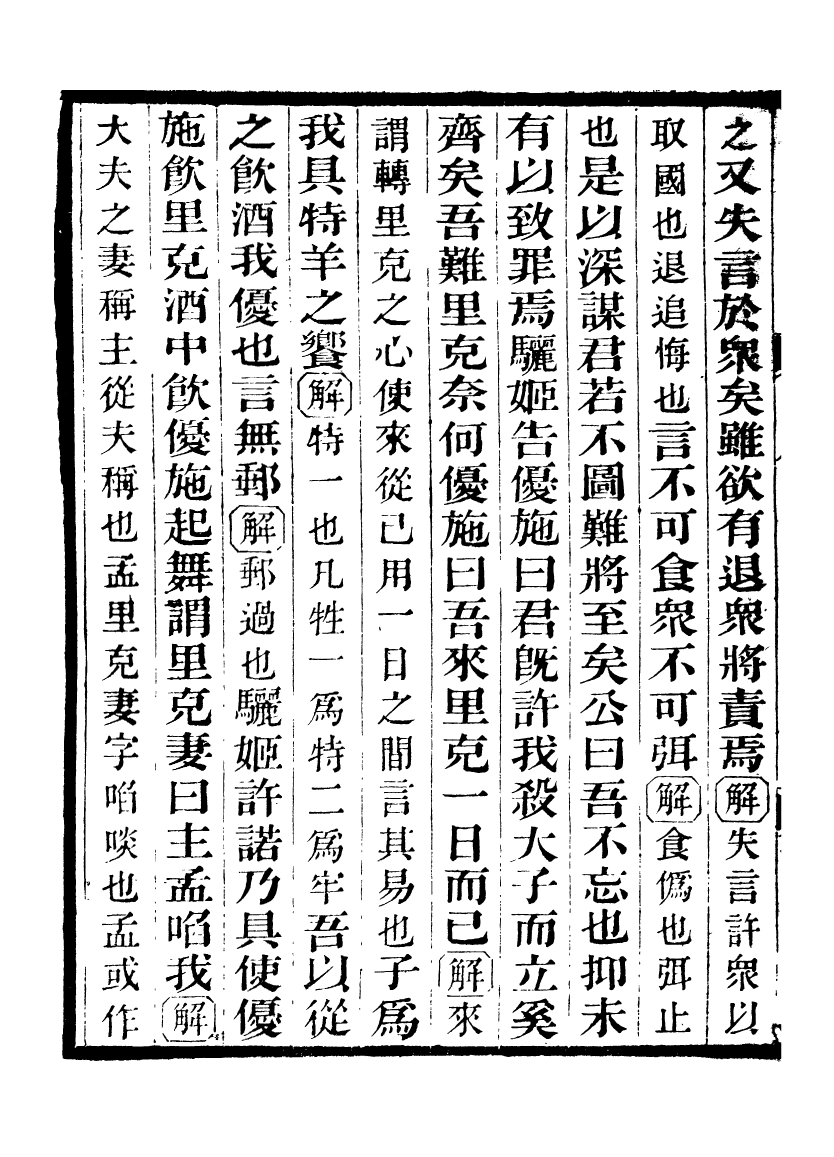 之又失言於衆矣雖欲有退衆將責焉解失言許衆以
取國也退追悔也言不可食衆不可弭解食僞也弭止
也是以深謀君若不圖難將至矣公曰吾不忘也抑未
有以致罪焉驪姬告優施曰君旣許我殺大子而立奚
齊矣吾難里克奈何優施曰吾來里克一日而已解來
謂轉里克之心使來從己用一日之間言其易也子爲
我具特羊之饗解特一也凡牲一爲特二爲牢吾以從
之飮酒我優也言無郵解郵過也驪姬許諾乃具使優
施飮里克酒中飮優施起舞謂里克妻曰主孟啗我解
大夫之妻稱主從夫稱也孟里克妻字啗啖也孟或作